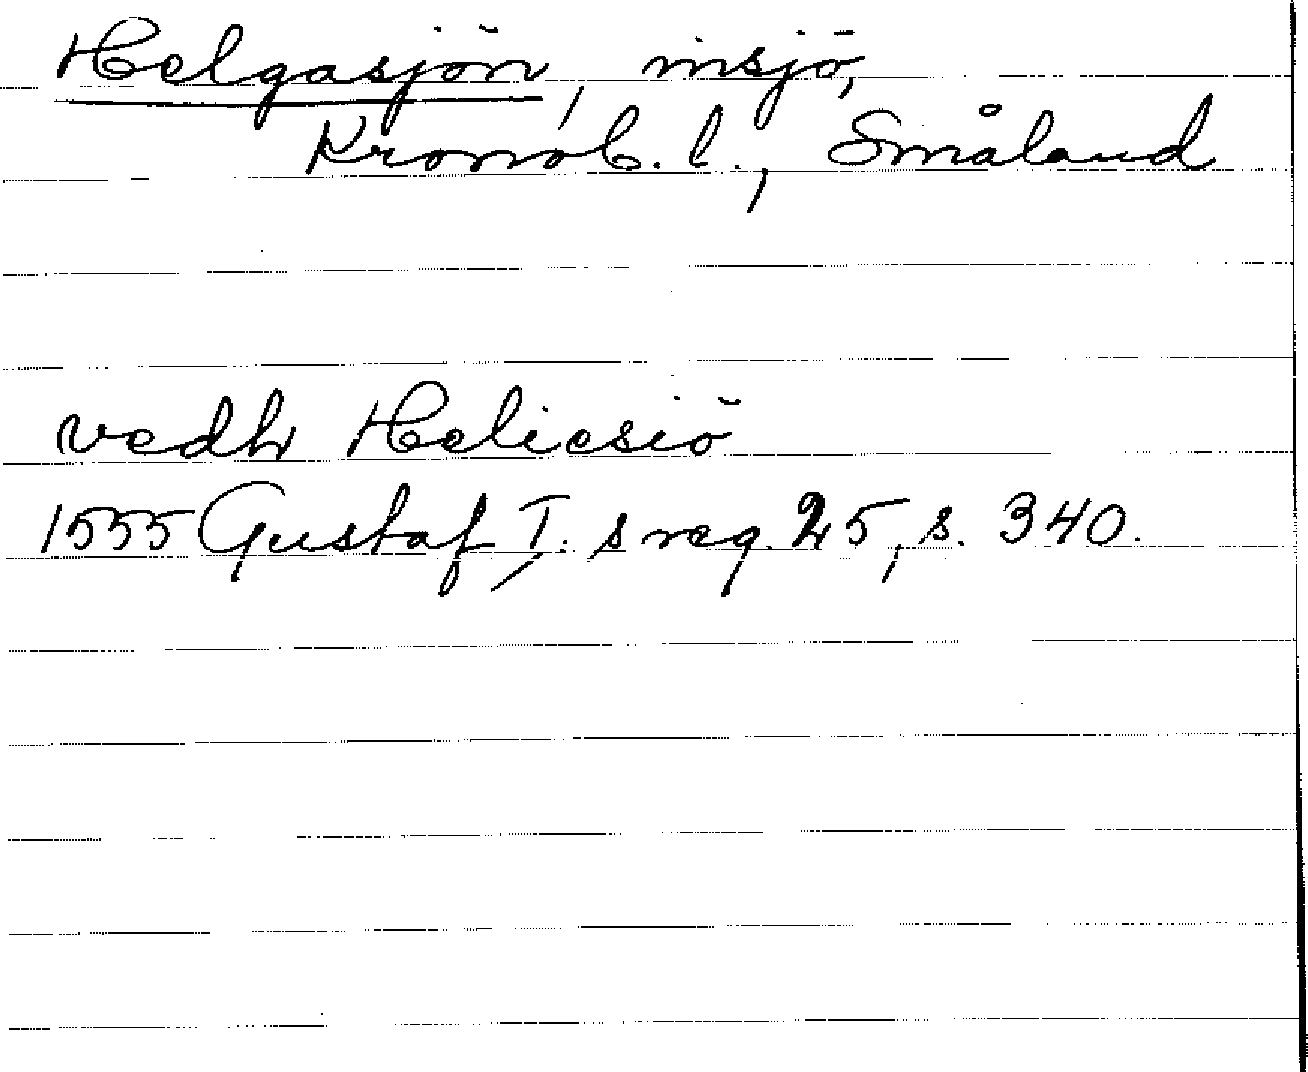 Helgasjön, insjö,
Kronob. l., Småland
vedh Heliesiö
1555 Gustaf I:s reg. 25, s. 340.